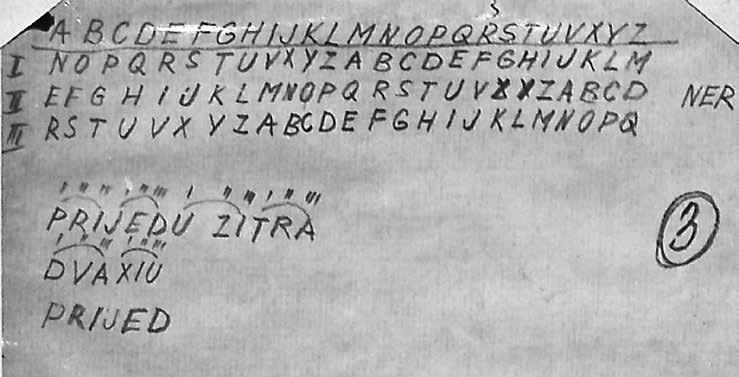 A B C D E F G H I J K L M N O P Q R S T U V X Y Z
I N O P Q R S T U V X Y Z A B C D E F G H I J K L M
II E F G H I J K L M N O P Q R S T U V X Y Z A B C D NER
III R S T U V X Y Z A B C D E F G H I J K L M N O P Q
PRIJEDU ZITRA
3
DVAXIU
PRIJED